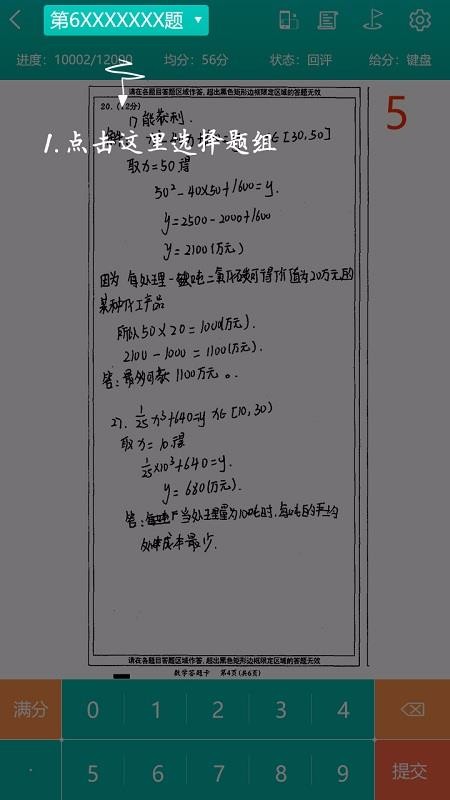 第6XXXXXXX题
进度：10002/12000 均分：56分 状态：回评 给分：键盘
请在各题目答题区域作答，超出黑色矩形边框限定区域的答题无效
20.(12分)
5
1) 能获利.
∈[30,50]
1.点击这里选择题组
取x=50得
50²-40×50+1600=y.
y=2500-2000+1600
y=2100(万元)
因为 每处理一吨二氧化碳可得价值为20万元的
某种化工产品
所以50×20=1000(万元).
2100-1000=1100(万元).
答:最多可获1100万元。
2). 1/25 x³+640=y x∈[10,30)
取x=10得
1/25×10³+640=y.
y=680(万元).
答: 当处理量为10吨时,每吨的平均
处理成本最少.
请在各题目答题区域作答，超出黑色矩形边框限定区域的答题无效
数学答题卡 第4页(共6页)
满分 0 1 2 3 4
· 5 6 7 8 9 提交